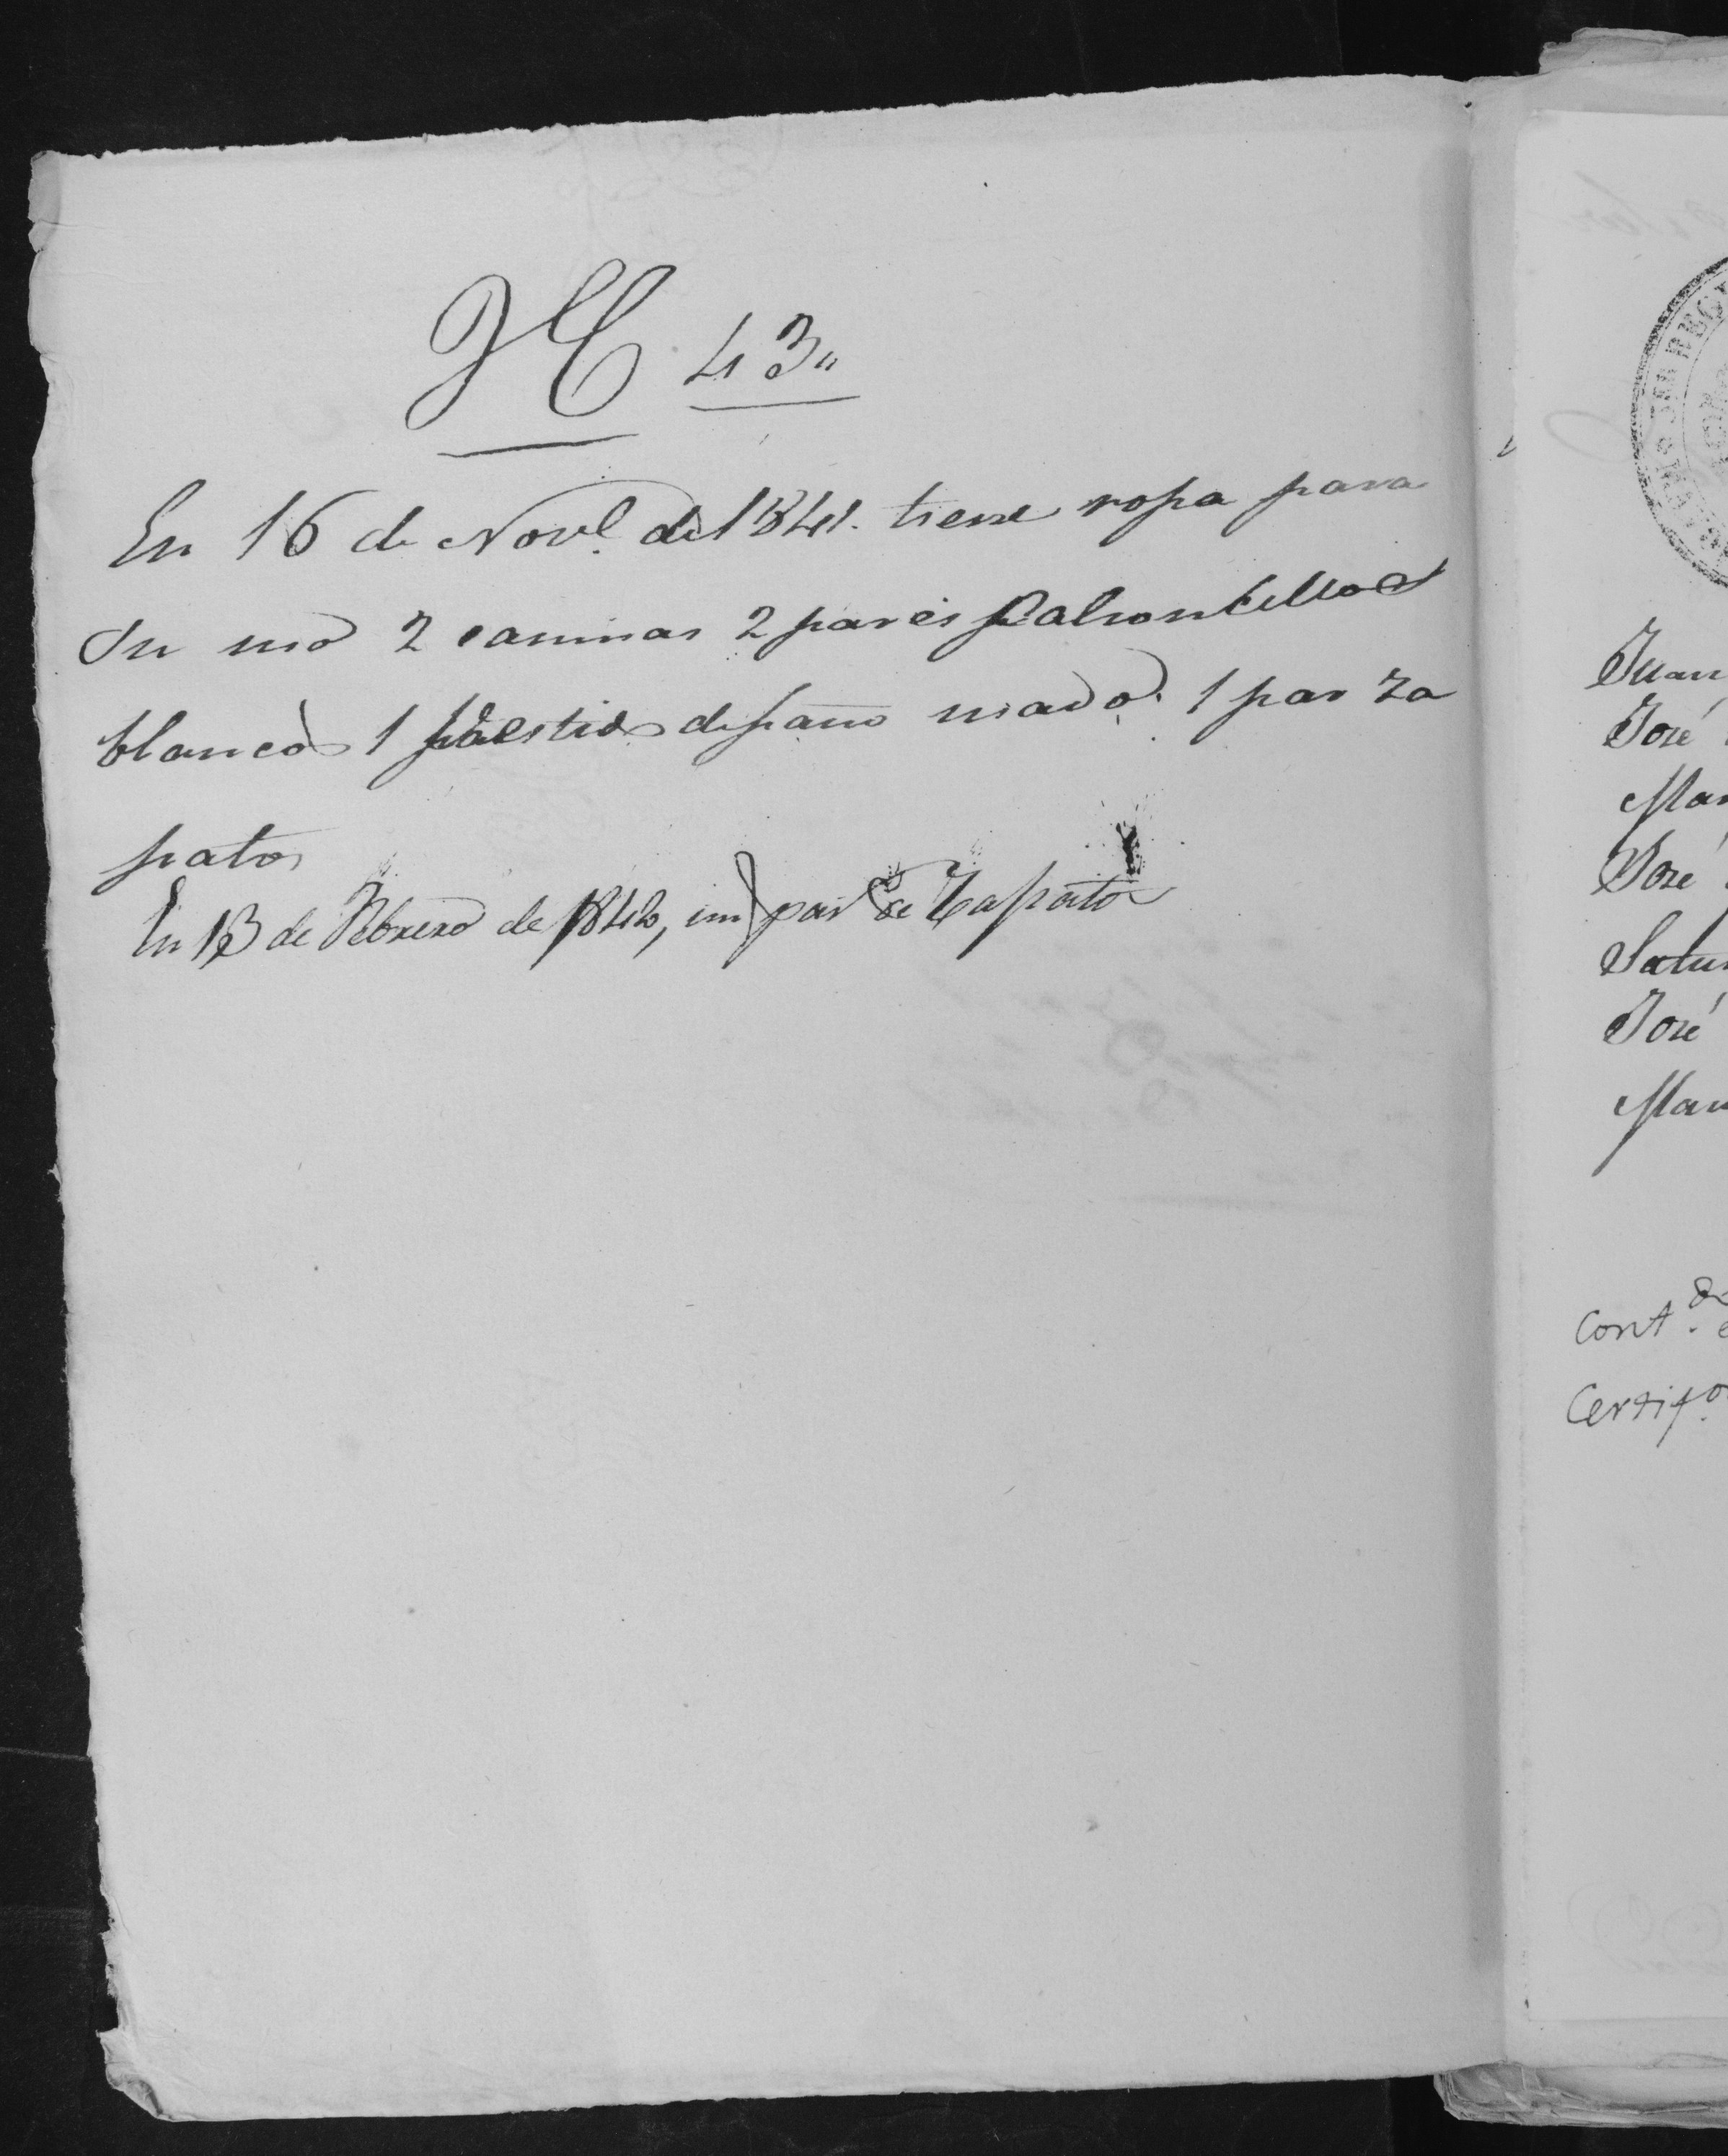 H 43"
En 16 de Nove. de 1841. tiene ropa para
Su uso 2 camisas 2 pares Calsoncillos
blancos 1 vestido de paño usado. 1 par za
patos
En 13 de Febrero de 1842, un par de Zapatos
Juan
José
Man
José
Satur
José
Man
Cont.
Certif.º